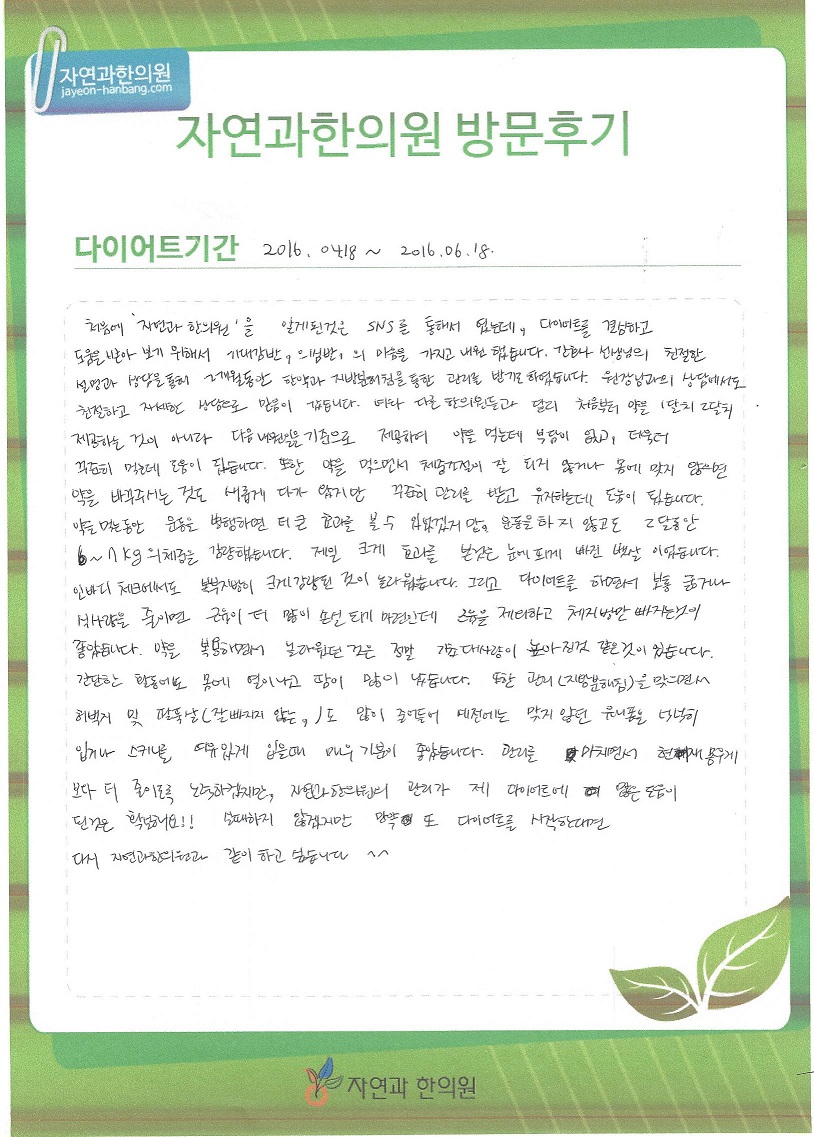 자연과한의원
jayeon-hanbang.com
자연과한의원 방문후기
다이어트기간 2016.04.18 ~ 2016.06.18.
처음에 '자연과 한의원'을 알게된것은 SNS를 통해서 였는데, 다이어트를 결심하고
도움을 받아 보기 위해서 기대감반, 의심반, 의 마음을 가지고 내원 했습니다. 선생님의 친절한
설명과 상담을 통해 2개월동안 한약과 지방분해침을 통한 관리를 받기로 하였습니다. 원장님과의 상담에서도
친절하고 자세한 상담으로 믿음이 갔습니다. 여타 다른 한의원들과 달리 처음부터 약을 1달치 2달치
제공하는 것이 아니라 다음 내원일을 기준으로 제공하여 약을 먹는데 부담이 없고, 더욱더
꾸준히 먹는데 도움이 됬습니다. 또한 약을 먹으면서 체중감량이 잘 되지 않거나 몸에 맞지 않으면
약을 바꿔주시는 것도 새롭게 다가 왔지만 꾸준히 관리를 받고 유지하는데 도움이 됬습니다.
약을 먹는동안 운동을 병행하면 더 큰 효과를 볼 수 있었겠지만, 운동을 하지 않고도 2달동안
6~7kg의 체중을 감량했습니다. 제일 크게 효과를 본것은 눈에 띄게 빠진 뱃살 이었습니다.
인바디 체크에서도 복부지방이 크게 감량된 것이 놀라웠습니다. 그리고 다이어트를 하면서 보통 굶거나
식사량을 줄이면 근육이 더 많이 손실 되기 마련인데 근육을 제외하고 체지방만 빠지는것이
좋았습니다. 약을 복용하면서 놀라웠던 것은 정말 기초대사량이 높아진것 같은것이 있습니다.
간단한 활동에도 몸에 열이나고 땀이 많이 났습니다. 또한 관리(지방분해침)을 맞으면서
허벅지 및 팔뚝살(잘빠지지 않는,)도 많이 줄어들어 예전에는 맞지 않던 유니폼을 넉넉히
입거나 스키니를 여유있게 입을때 매우 기분이 좋았습니다. 관리를 마치면서 현재 몸무게
보다 더 줄이도록 노력하겠지만, 자연과한의원의 관리가 제 다이어트에 많은 도움이
된것은 확실해요!! 실패하지 않겠지만 만약 또 다이어트를 시작한다면
다시 자연과한의원과 같이 하고 싶습니다 ^^
자연과 한의원